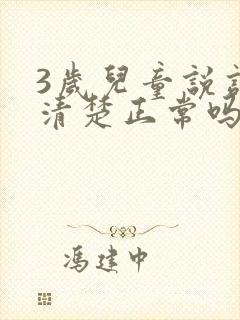 3歲兒童說
清楚正常吗
馮建中